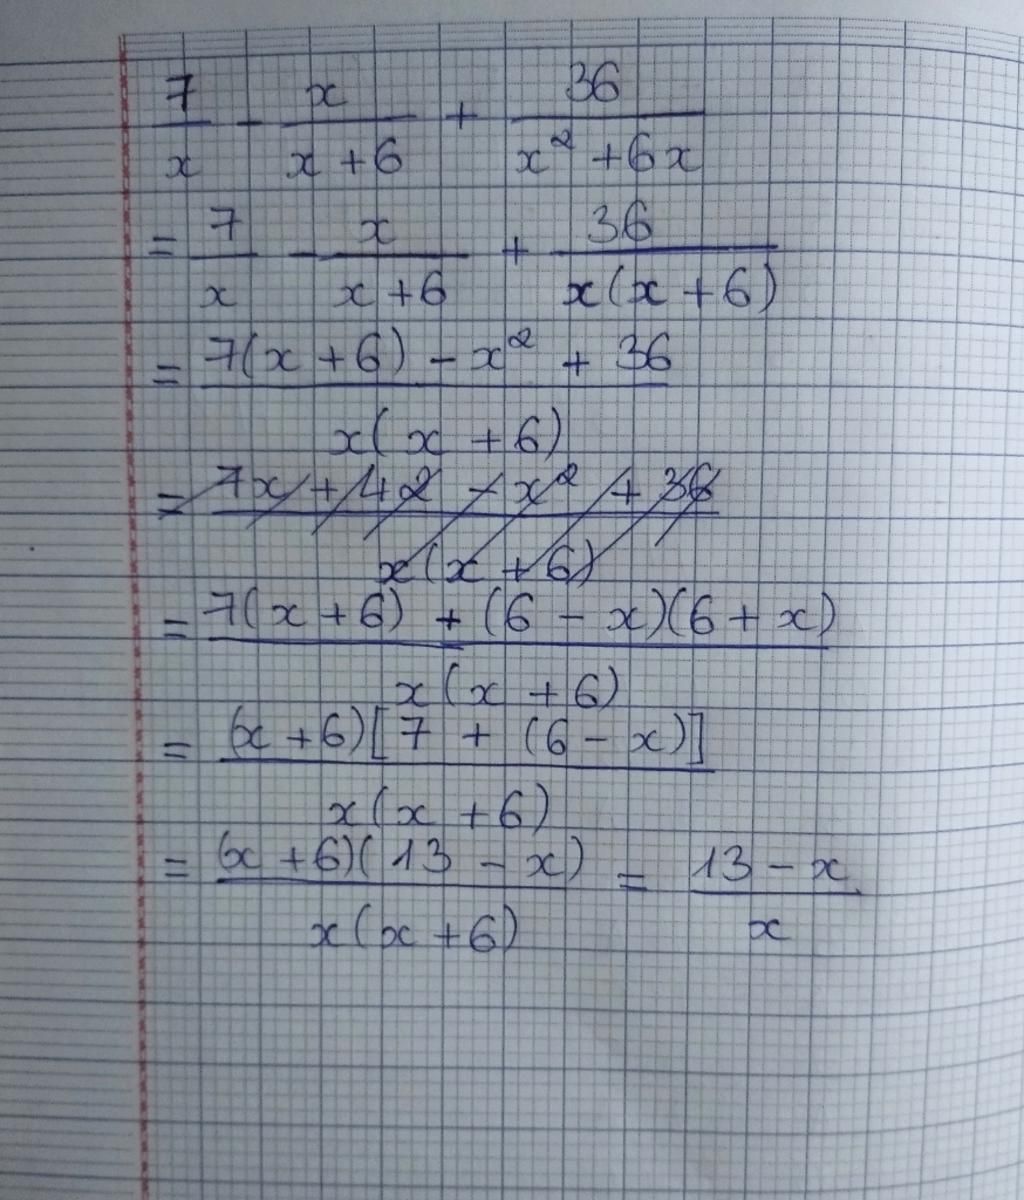 7/x - x/(x + 6) + 36/(x² + 6x)
= 7/x - x/(x + 6) + 36/(x(x + 6))
= (7(x + 6) - x² + 36)/(x(x + 6))
= (7x + 42 - x² + 36)/(x(x + 6))
= (7(x + 6) + (6 - x)(6 + x))/(x(x + 6))
= ((x + 6)[7 + (6 - x)])/(x(x + 6))
= ((x + 6)(13 - x))/(x(x + 6)) = (13 - x)/x